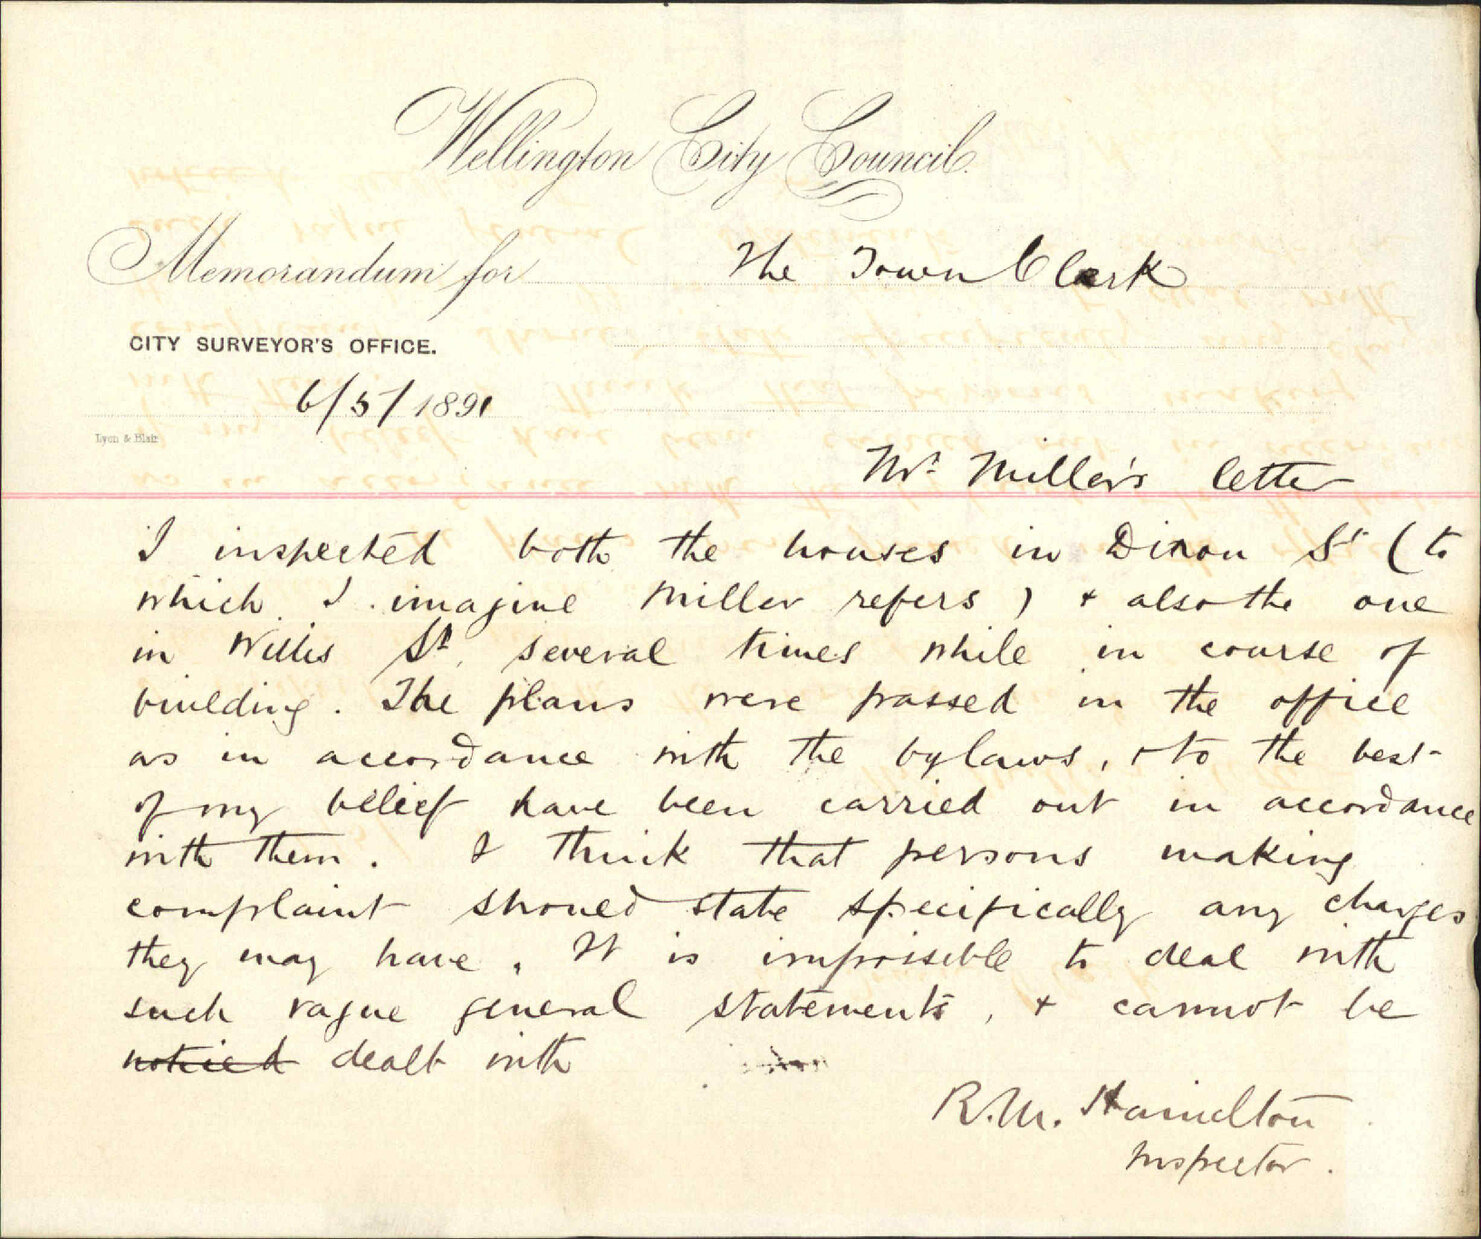 Wellington City Council.
Memorandum for The Town Clerk
CITY SURVEYOR'S OFFICE.
6/5/1891
Lyon & Blair
Mr. Miller's letter
I inspected both the houses in Dixon St (to
which I imagine Miller refers) & also the one
in Willis St, several times while in course of
building. The plans were passed in the office
as in accordance with the bylaws, & to the best
of my belief have been carried out in accordance
with them. I think that persons making
complaint should state specifically any charges
they may have. It is impossible to deal with
such vague general statements, & cannot be
noticed dealt with
R.M. Hamilton
Inspector.